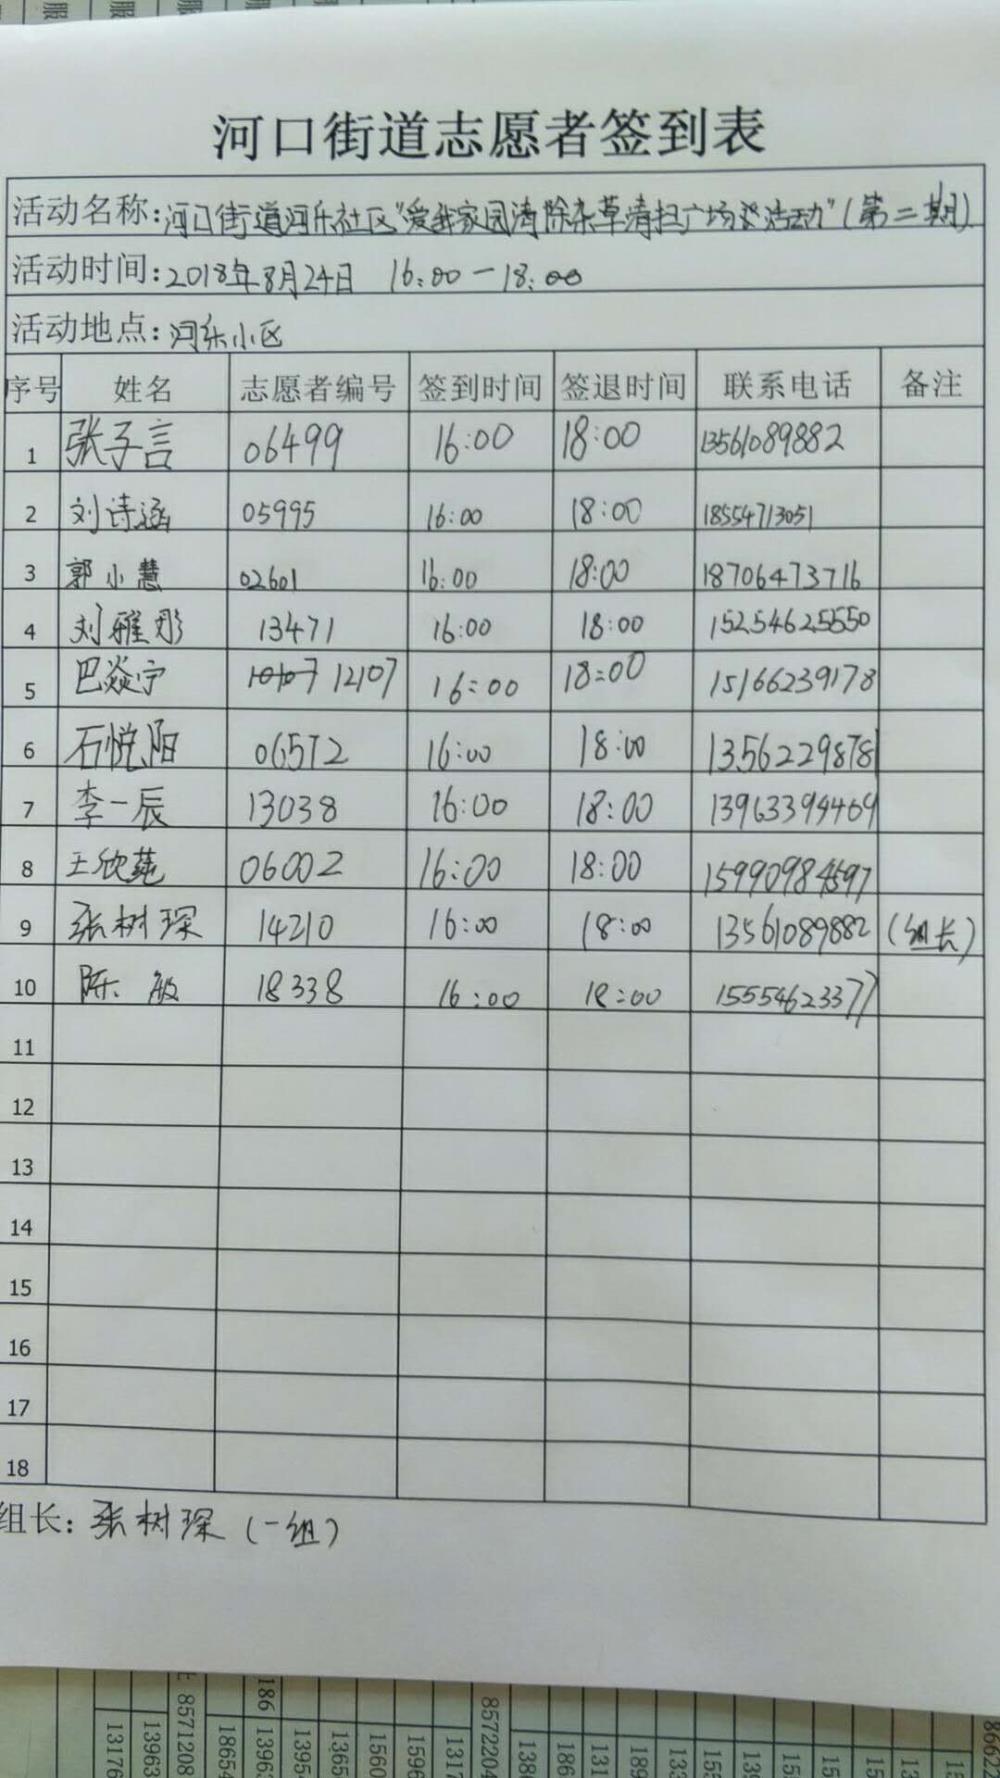 河口街道志愿者签到表
活动名称:河口街道河乐社区"爱我家园清除杂草清扫广场 活动"(第二期)
活动时间:2018年8月24日 16:00-18:00
活动地点:河乐小区
序号 姓名 志愿者编号 签到时间 签退时间 联系电话 备注
1 张子言 06499 16:00 18:00 13561089882
2 刘诗涵 05995 16:00 18:00 18554713051
3 郭小慧 02601 16:00 18:00 18706473716
4 刘雅彤 13471 16:00 18:00 15254625550
5 巴焱宁 12107 16:00 18:00 15166239178
6 石悦阳 06572 16:00 18:00 13562298781
7 李一辰 13038 16:00 18:00 13963394469
8 王欣莲 06002 16:00 18:00 15990984597
9 张树琛 14210 16:00 18:00 13561089882 (组长)
10 陈敏 18338 16:00 18:00 15554623377
11
12
13
14
15
16
17
18
组长: 张树琛(一组)